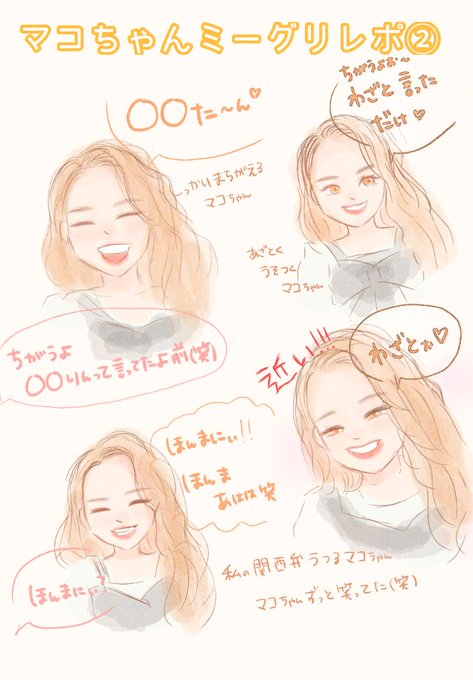 マコちゃんミーグリレポ②
〇〇た〜ん♡
しっかいまちがえる
マコちゃん
ちがうよぉ〜
わざと言った
だけ♡
あざとく
うそつく
マコちゃん
ちがうよ
〇〇りんって言ってたよ前(笑)
近い!!!
わざとぉ♡
ほんまにぃ!!
ほんま
あはは笑
ほんまにぃ?
私の関西弁うつるマコちゃん
マコちゃんずっと笑ってた(笑)